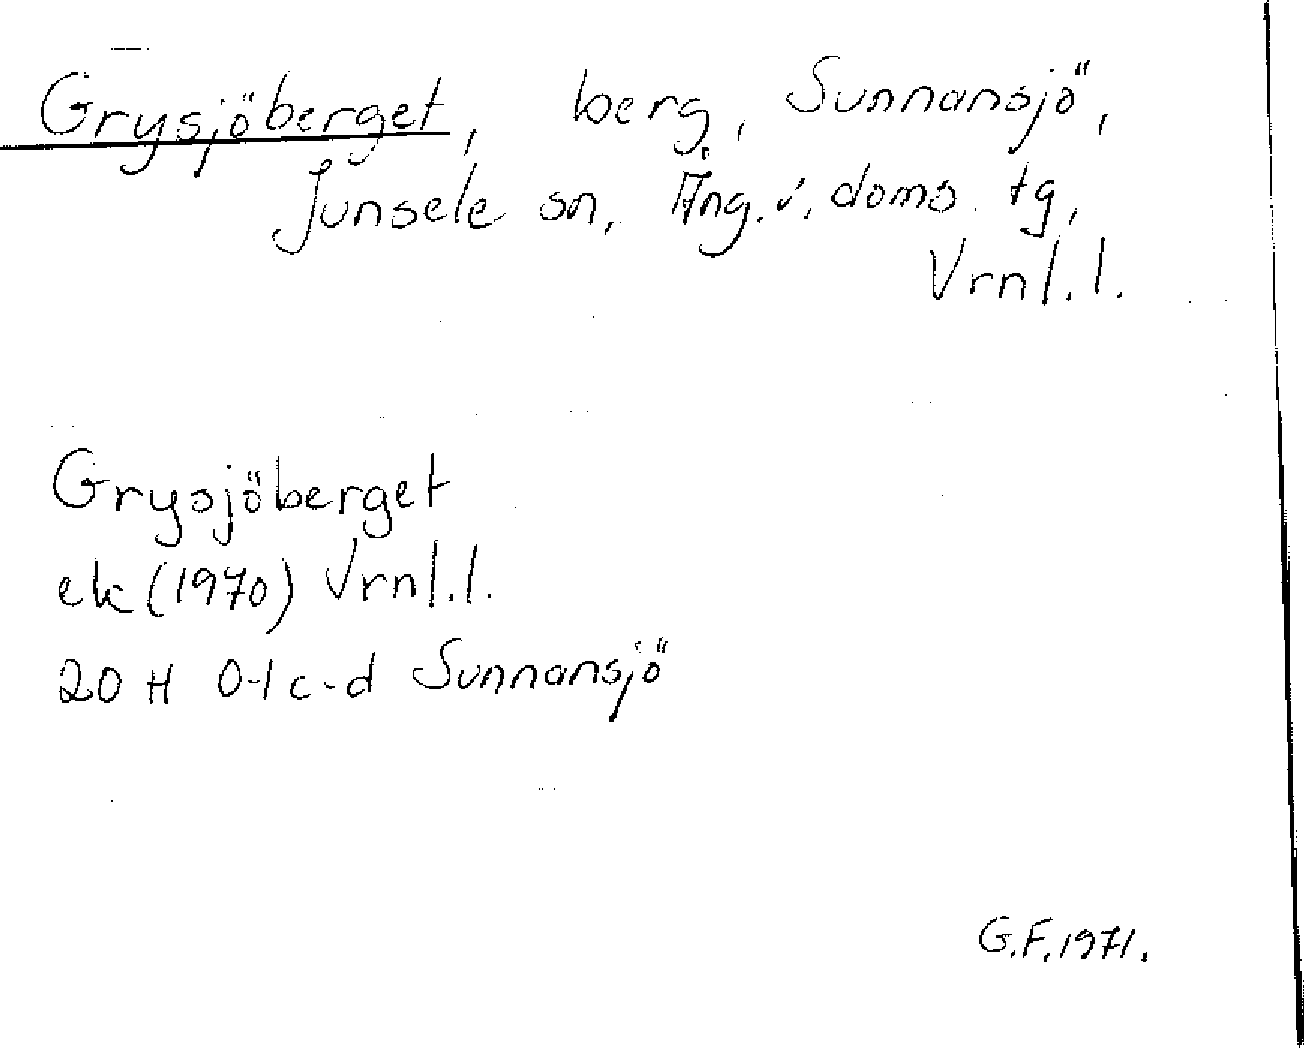 Grysjöberget, berg, Sunnansjö,
Junsele sn, Ång. v. doms. tg,
Vrnl. l.
Grysjöberget
ek (1970) Vrnl. l.
20 H 0-1 c-d Sunnansjö
G.F. 1971.